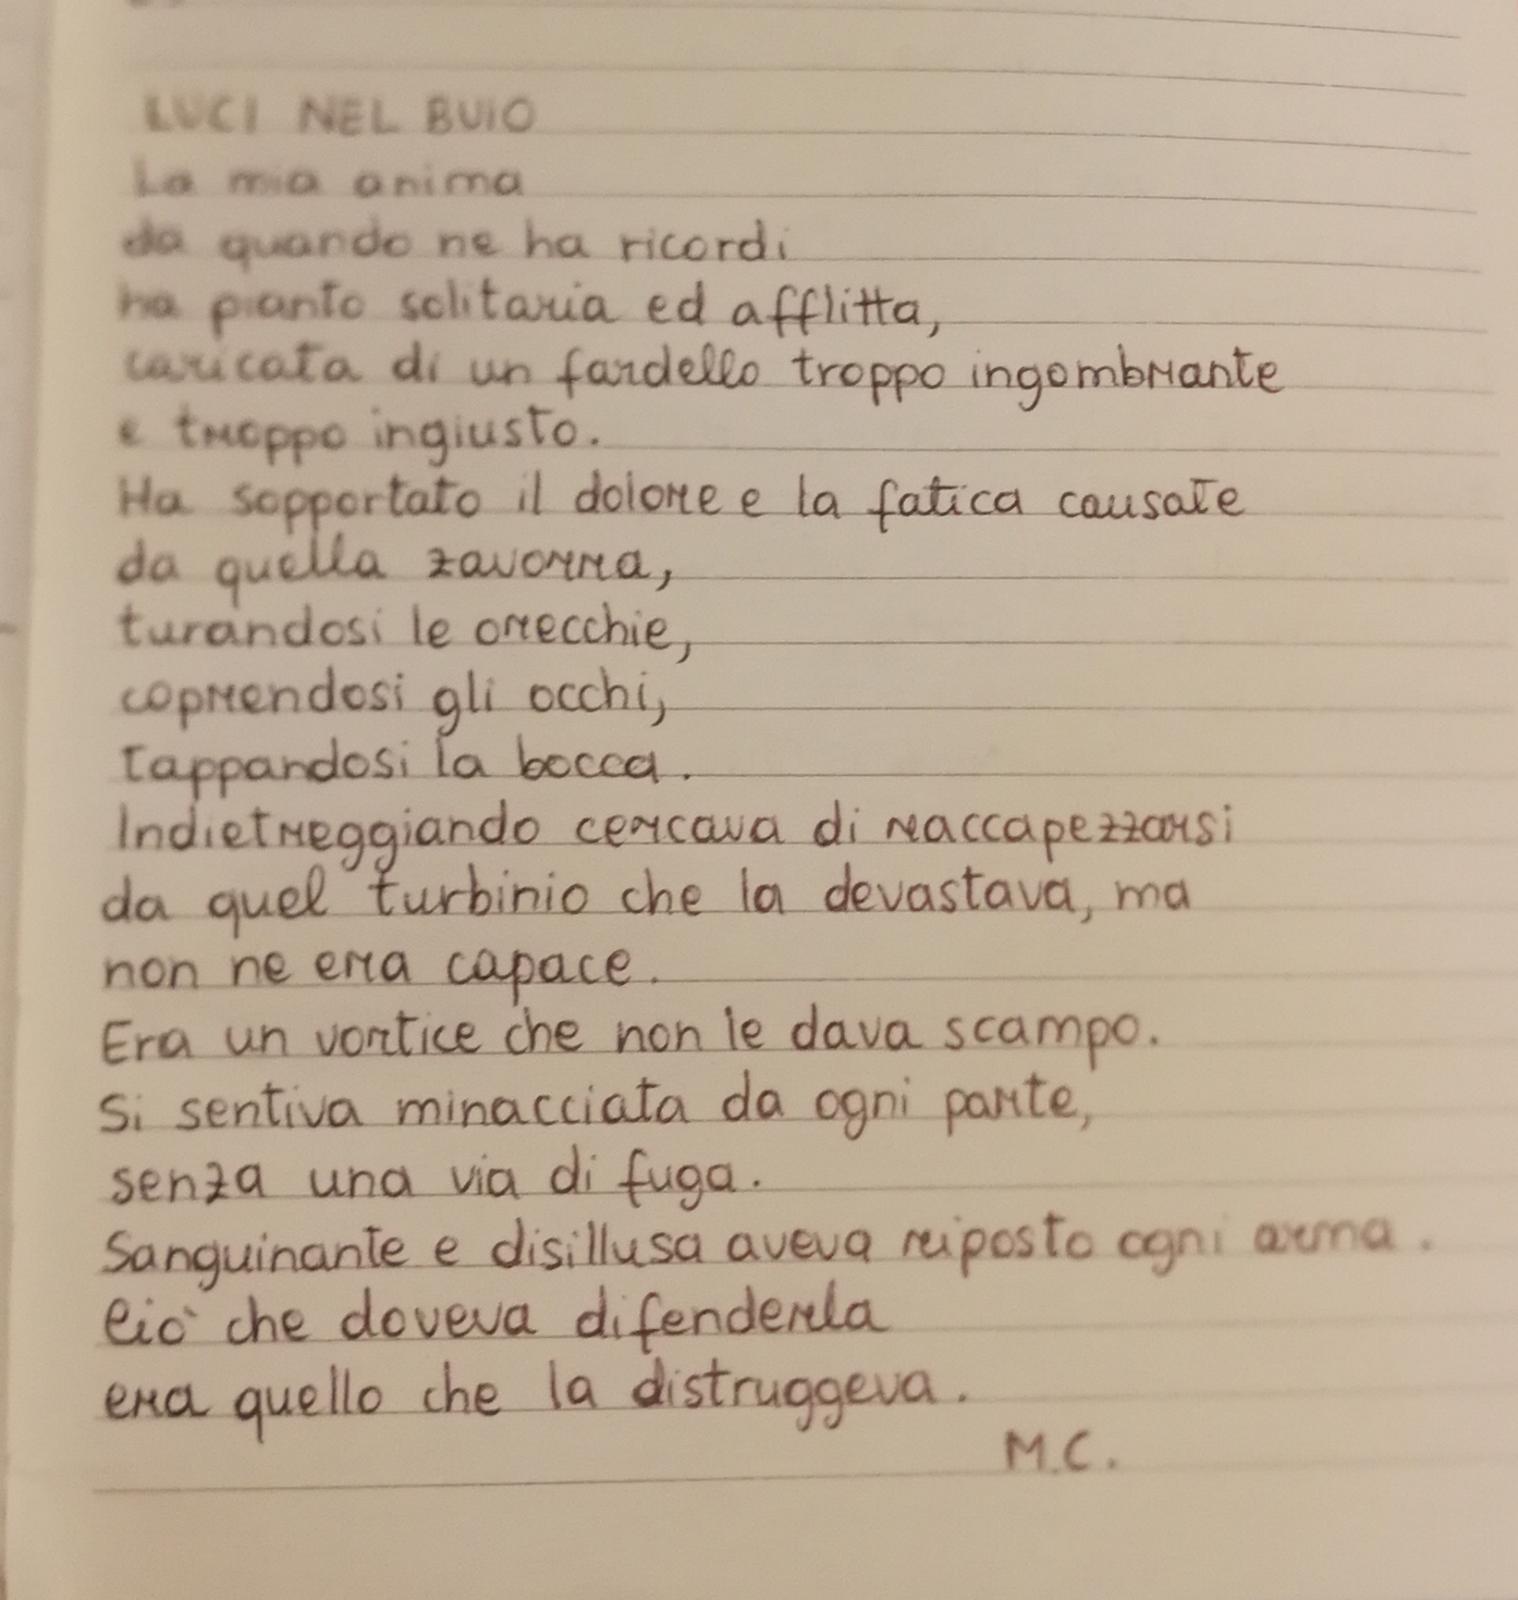 LUCI NEL BUIO
La mia anima
da quando ne ha ricordi
ha pianto solitaria ed afflitta,
caricata di un fardello troppo ingombrante
e troppo ingiusto.
Ha sopportato il dolore e la fatica causate
da quella zavorra,
turandosi le orecchie,
coprendosi gli occhi,
tappandosi la bocca.
Indietreggiando cercava di raccapezzarsi
da quel turbinio che la devastava, ma
non ne era capace.
Era un vortice che non le dava scampo.
Si sentiva minacciata da ogni parte,
senza una via di fuga.
Sanguinante e disillusa aveva riposto ogni arma.
Ciò che doveva difenderla
era quello che la distruggeva.
M.C.